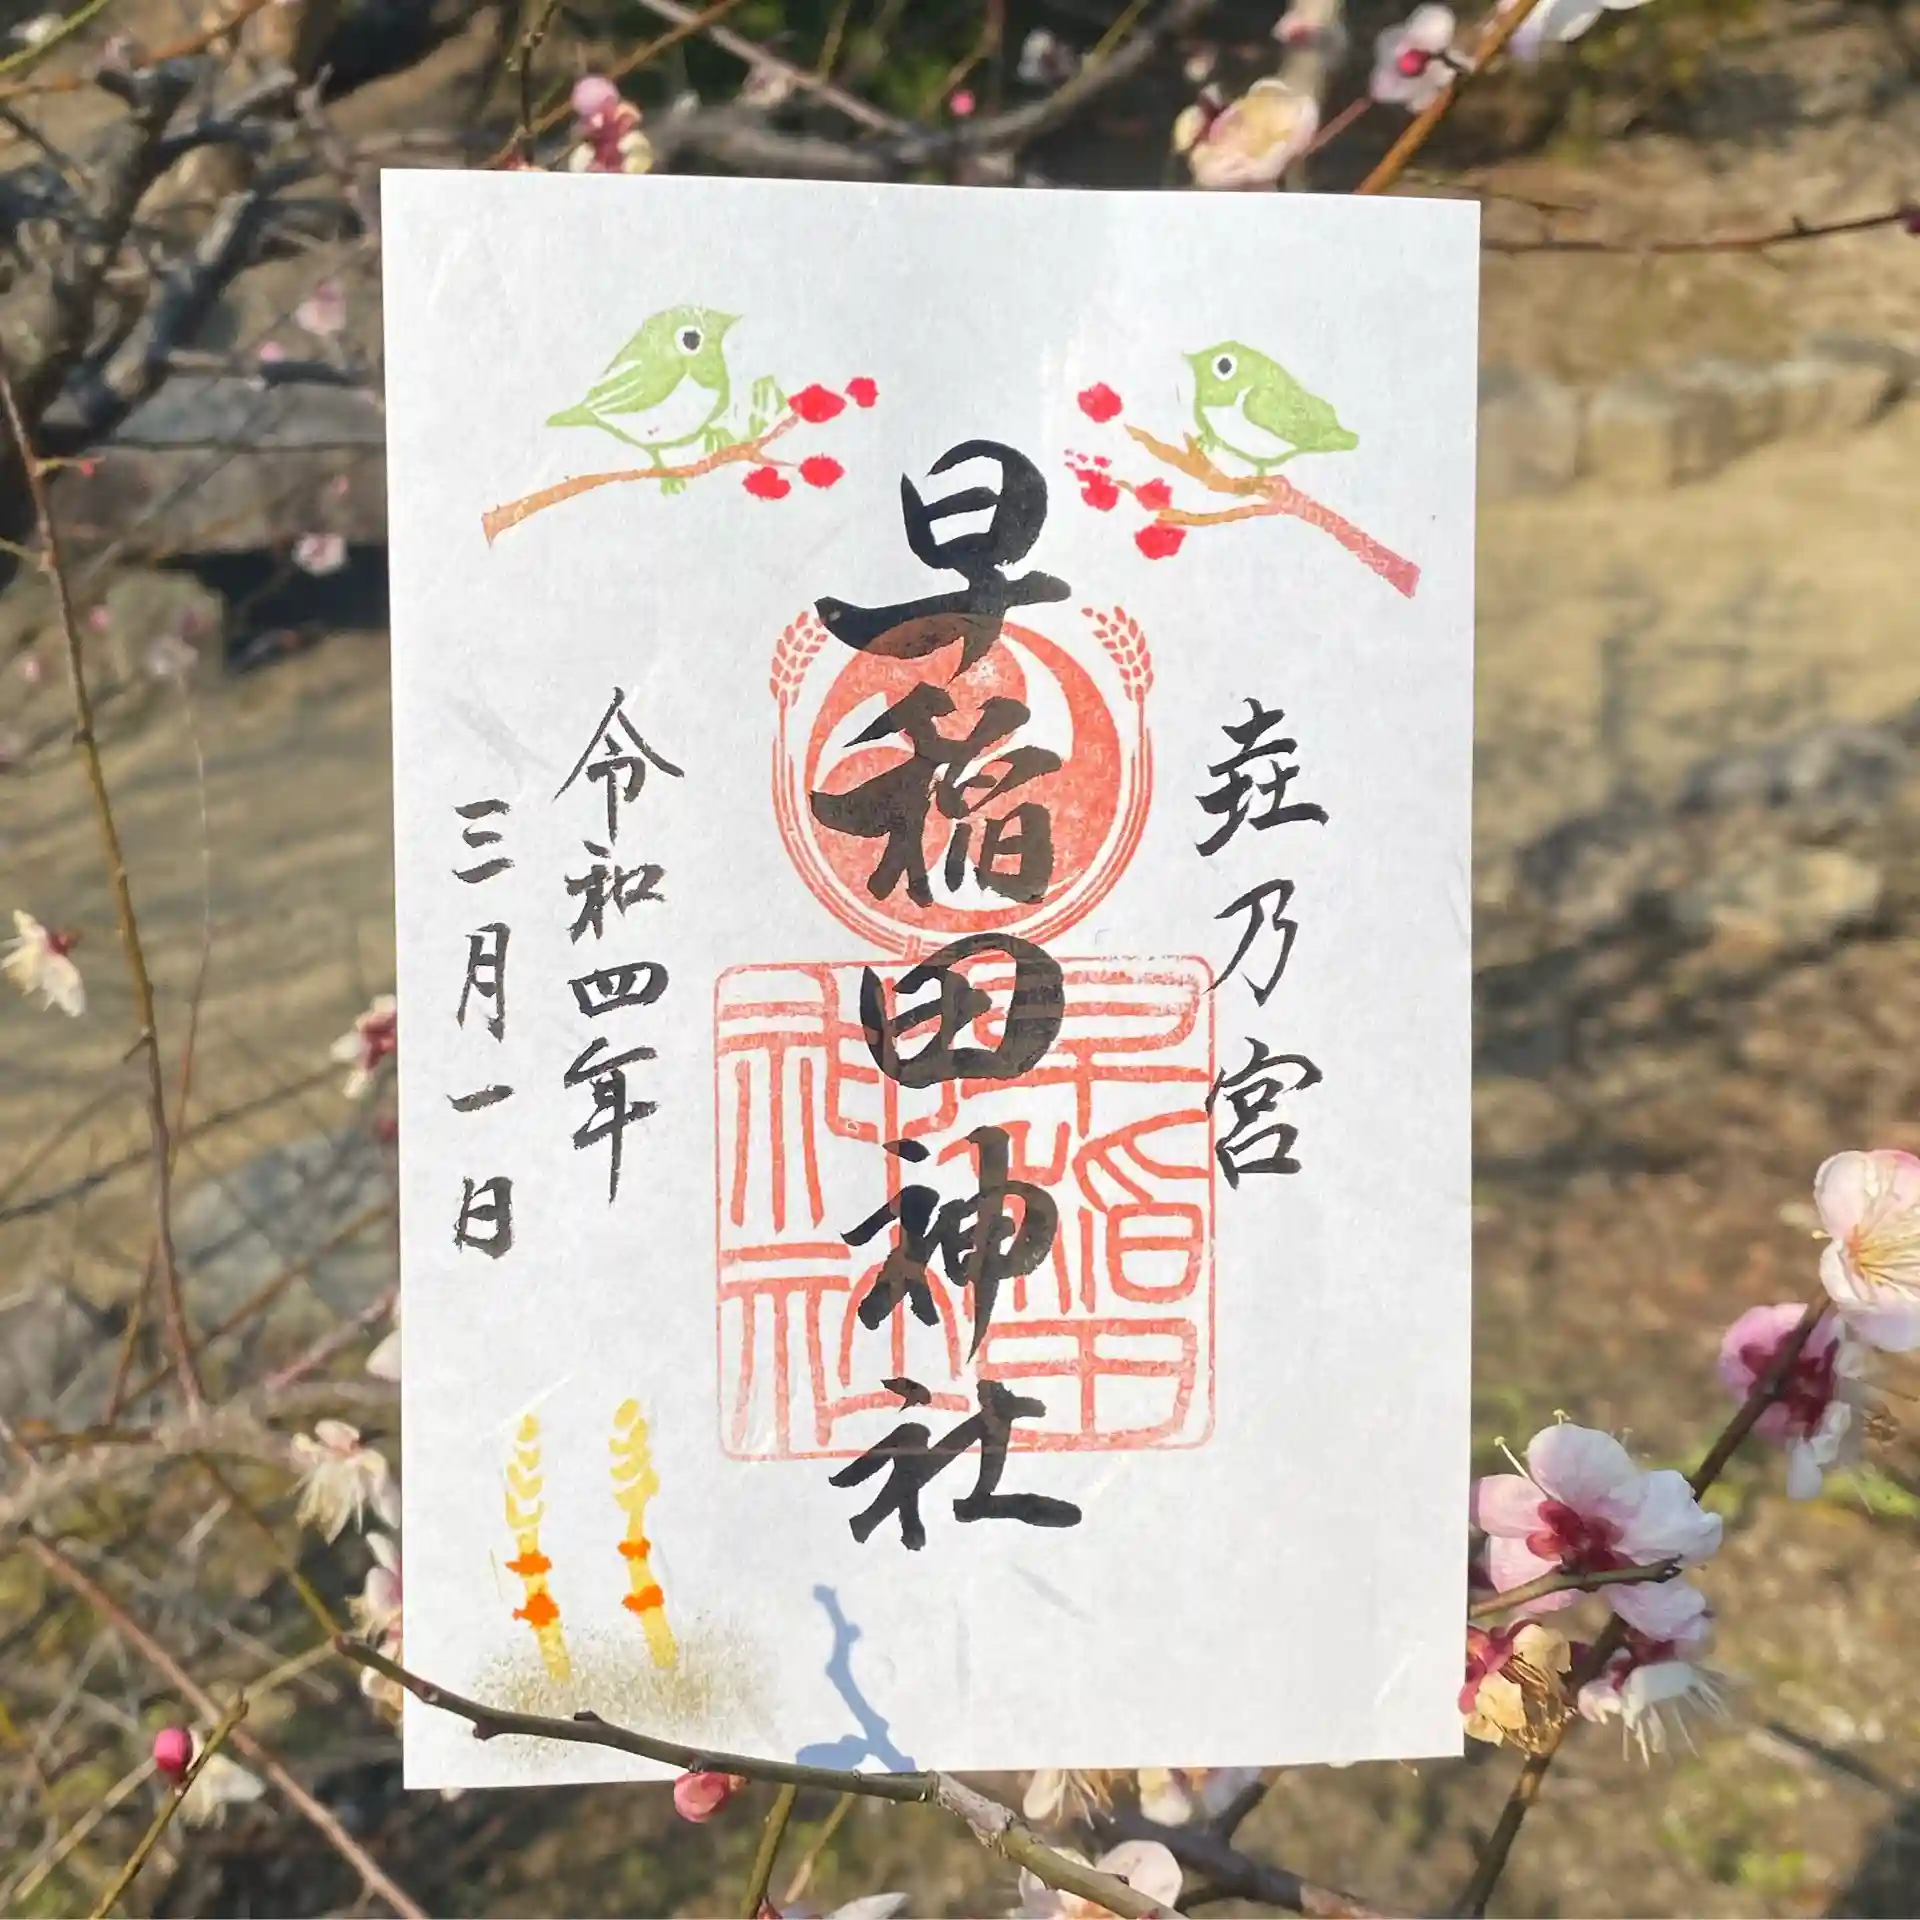 垚乃宮
早稲田神社
令和四年
三月一日
早稲田
神社